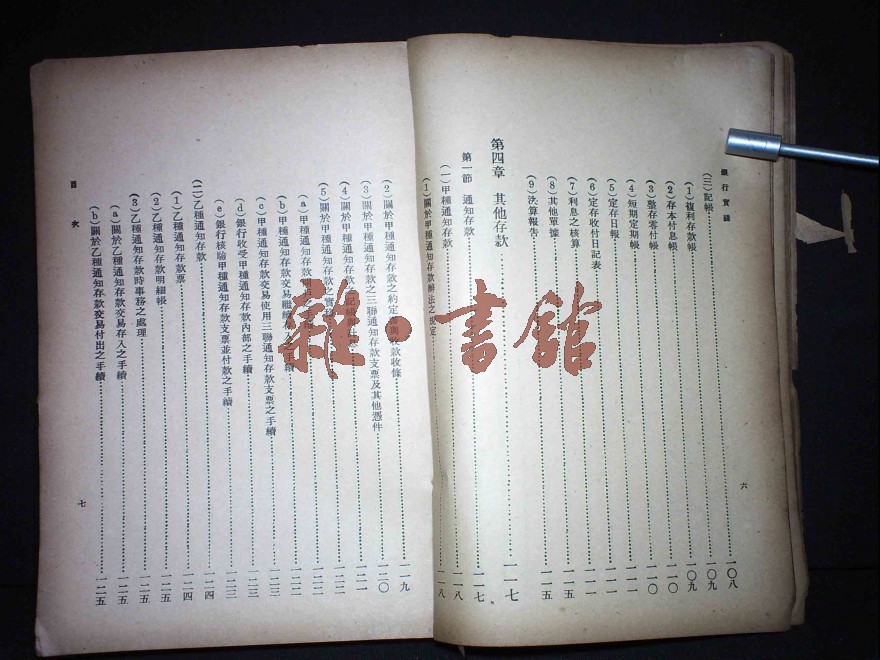 銀行實踐
(三)記帳 一〇八
(1)複利存款帳 一〇九
(2)存本付息帳 一〇九
(3)整存零付帳 一一〇
(4)短期定期帳 一一〇
(5)定存日報 一一一
(6)定存收付日記表 一一一
(7)利息之核算 一一五
(8)其他單據 一一五
(9)決算報告
第四章 其他存款 一一七
第一節 通知存款 一一七
(一)甲種通知存款 一一八
(1)關於甲種通知存款辦法之規定 一一八
六
(2)關於甲種通知存款之約定 與收款收條 一一九
(3)關於甲種通知存款之三聯通知存款支票及其他憑件 一二〇
(4)關於甲種通知存款 記帳 一二一
(5)關於甲種通知存款之實 一二二
(a)甲種通知存款 手續 一二二
(b)甲種通知存款交易繼續存 之手續 一二二
(c)甲種通知存款交易使用三聯通知存款支票之手續 一二三
(d)銀行收受甲種通知存款內部之手續 一二三
(e)銀行核驗甲種通知存款支票並付款之手續 一二三
(二)乙種通知存款 一二四
(1)乙種通知存款票 一二四
(2)乙種通知存款明細帳 一二五
(3)乙種通知存款時事務之處理 一二五
(a)關於乙種通知存款交易存入之手續 一二五
(b)關於乙種通知存款交易付出之手續 一二五
目次
七
雜·書館